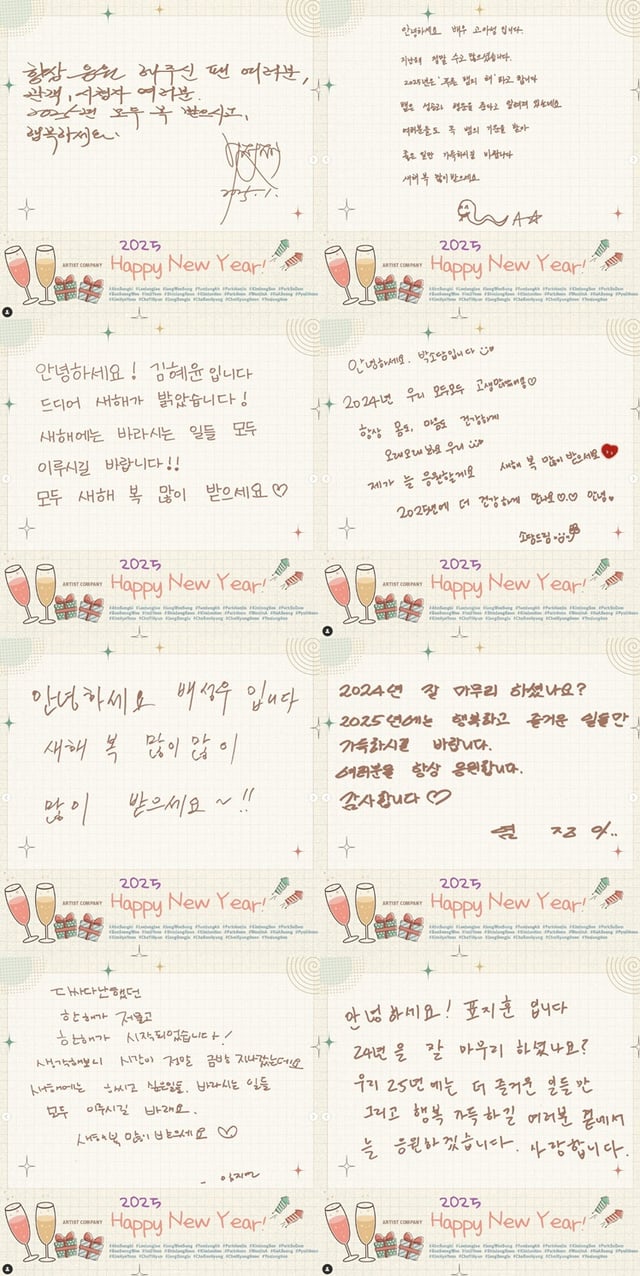 항상 응원 해주신 팬 여러분,
관객, 시청자 여러분.
2025년 모두 복 받으시고,
행복하세요.
2025. 1.
2025
ARTIST COMPANY
Happy New Year!
안녕하세요 배우 고아성 입니다.
지난해 정말 수고 많으셨습니다.
2025년은 '푸른 뱀의 해' 라고 합니다
뱀은 성공과 행운을 준다고 알려져 있는데요
여러분들도 푸른 뱀의 기운을 받아
좋은 일만 가득하시길 바랍니다
새해 복 많이 받으세요
2025
ARTIST COMPANY
Happy New Year!
안녕하세요! 김혜윤입니다
드디어 새해가 밝았습니다!
새해에는 바라시는 일들 모두
이루시길 바랍니다!!
모두 새해 복 많이 받으세요♡
2025
ARTIST COMPANY
Happy New Year!
안녕하세요. 박소담입니다
2024년 우리 모두모두 고생많았어용♡
항상 몸도, 마음도 건강하게
오래오래 봐요 우리
제가 늘 응원할게요 새해 복 많이 받으세요
2025년에 더 건강하게 만나요♡♡ 안녕.
소담드림
2025
ARTIST COMPANY
Happy New Year!
안녕하세요 배성우 입니다
새해 복 많이 많이
많이 받으세요 ~!!
2025
ARTIST COMPANY
Happy New Year!
2024년 잘 마무리 하셨나요?
2025년에는 행복하고 즐거운 일들만
가득하시길 바랍니다.
여러분을 항상 응원합니다.
감사합니다♡
염 정 아..
2025
ARTIST COMPANY
Happy New Year!
다사다난했던
한해가 저물고
한해가 시작되었습니다!
생각해보니 시간이 정말 금방 지나갔는데요
새해에는 하시고 싶은일들, 바라시는 일들
모두 이루시길 바래요.
새해복 많이 받으세요♡
- 임지연
2025
ARTIST COMPANY
Happy New Year!
안녕하세요! 표지훈 입니다
24년을 잘 마무리 하셨나요?
우리 25년에는 더 즐거운 일들만
그리고 행복 가득하길 여러분 곁에서
늘 응원하겠습니다. 사랑합니다.
2025
ARTIST COMPANY
Happy New Year!